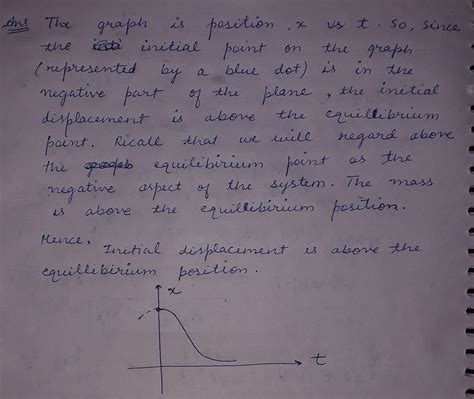 Ans The graph is position, x vs t. So, since
the initial point on the graph
(represented by a blue dot) is in the
negative part of the plane, the initial
displacement is above the equillibrium
point. Recall that we will regard above
the equilibirium point as the
negative aspect of the system. The mass
is above the equillibirium position.
Hence,
Initial displacement is above the
equillibirium position.
x
t